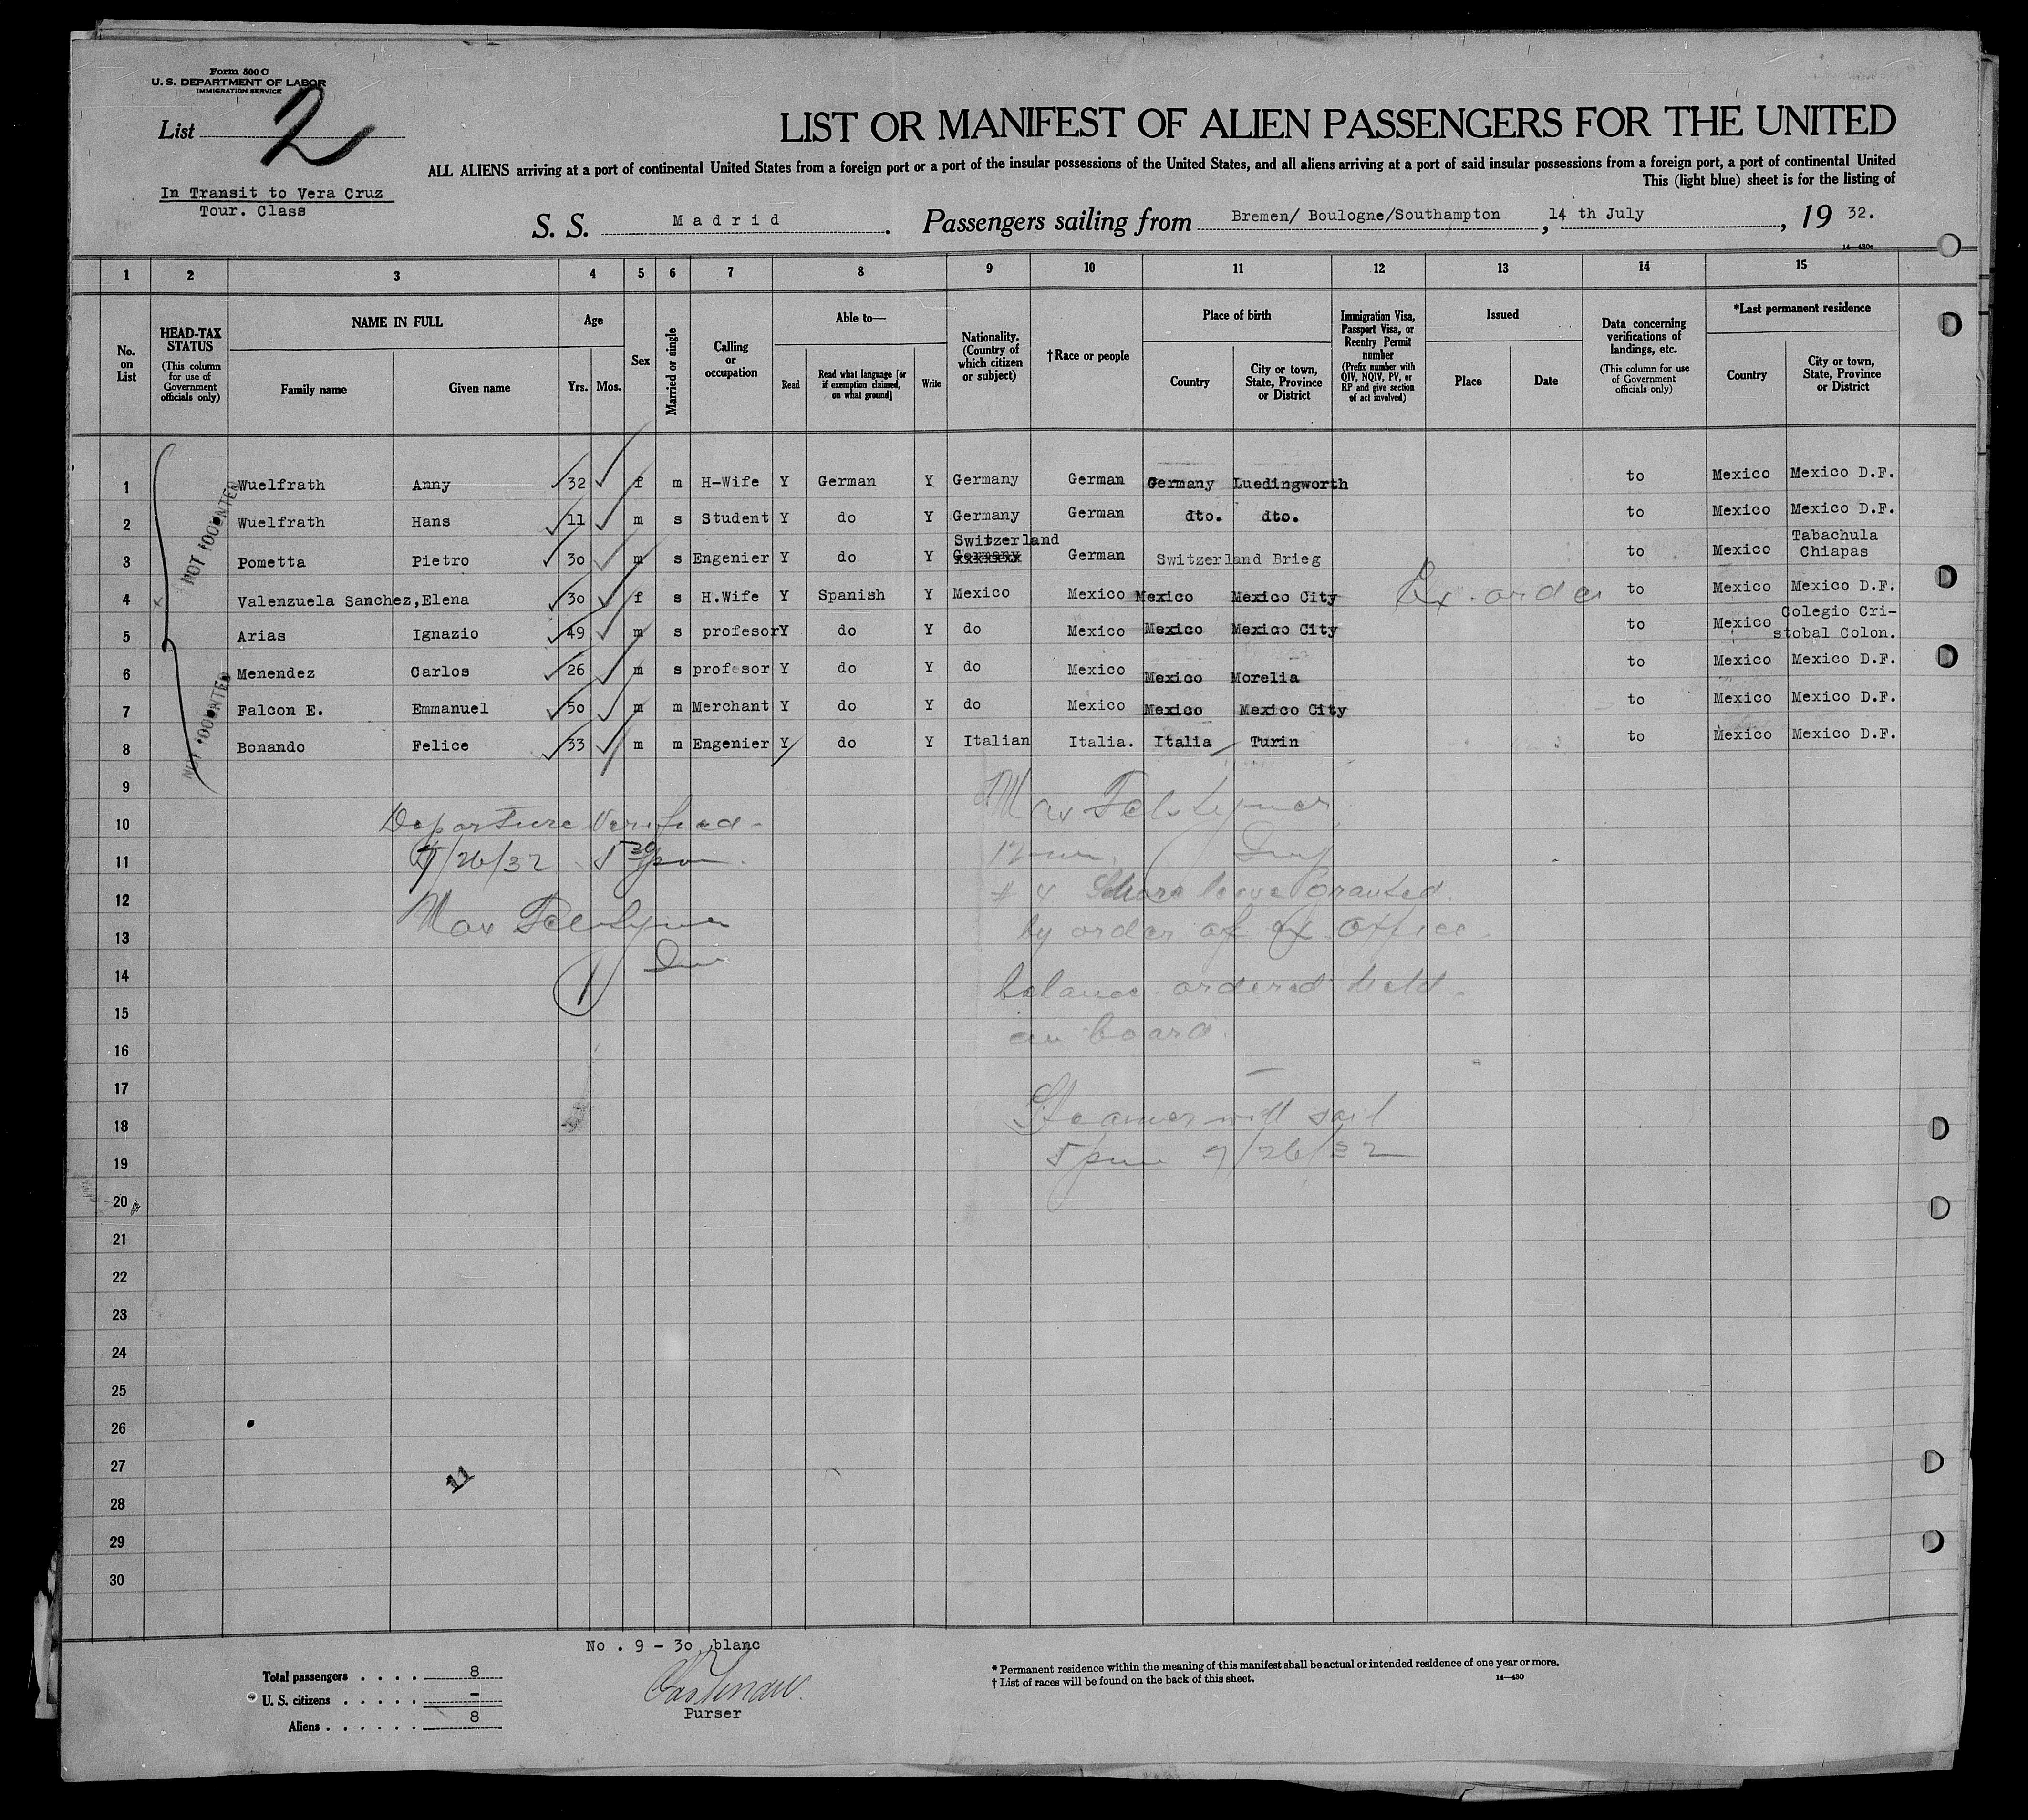 Form 500 C
U. S. DEPARTMENT OF LABOR
IMMIGRATION SERVICE
List 2
LIST OR MANIFEST OF ALIEN PASSENGERS FOR THE UNITED
ALL ALIENS arriving at a port of continental United States from a foreign port or a port of the insular possessions of the United States, and all aliens arriving at a port of said insular possessions from a foreign port, a port of continental United
This (light blue) sheet is for the listing of
In Transit to Vera Cruz
Tour. Class
S. S. Madrid. Passengers sailing from Bremen/ Boulogne/Southampton, 14 th July, 19 32.
14—430c
1 2 3 4 5 6 7 8 9 10 11 12 13 14 15
No. on List
HEAD-TAX STATUS
(This column for use of Government officials only)
NAME IN FULL
Family name
Given name
Age
Yrs. Mos.
Sex
Married or single
Calling or occupation
Able to—
Read
Read what language [or if exemption claimed, on what ground]
Write
Nationality. (Country of which citizen or subject)
†Race or people
Place of birth
Country
City or town, State, Province or District
Immigration Visa, Passport Visa, or Reentry Permit number
(Prefix number with QIV, NQIV, PV, or RP and give section of act involved)
Issued
Place
Date
Data concerning verifications of landings, etc.
(This column for use of Government officials only)
*Last permanent residence
Country
City or town, State, Province or District
1 Wuelfrath Anny 32 f m H-Wife Y German Y Germany German Germany Luedingworth to Mexico Mexico D.F.
2 Wuelfrath Hans 11 m s Student Y do Y Germany German dto. dto. to Mexico Mexico D.F.
Switzerland Tabachula
3 Pometta Pietro 30 m s Engenier Y do Y Germany German Switzerland Brieg to Mexico Chiapas
4 Valenzuela Sanchez,Elena 30 f s H.Wife Y Spanish Y Mexico Mexico Mexico Mexico City Ex. order to Mexico Mexico D.F.
Colegio Cri-
5 Arias Ignazio 49 m s profesor Y do Y do Mexico Mexico Mexico City to Mexico stobal Colon.
6 Menendez Carlos 26 m s profesor Y do Y do Mexico Mexico Morelia to Mexico Mexico D.F.
7 Falcon E. Emmanuel 50 m m Merchant Y do Y do Mexico Mexico Mexico City to Mexico Mexico D.F.
8 Bonando Felice 33 m m Engenier Y do Y Italian Italia. Italia Turin to Mexico Mexico D.F.
9
10
11
12
13
14
15
16
17
18
19
20
21
22
23
24
25
26
27
28
29
30
Departure Verified-
7/26/32 5 30 pm.
Max
# 4 Shore leave granted.
by order of Ex. Office.
balance ordered held
on board.
Steamer will sail
5 pm 7/26/32
11
No . 9 - 30 blanc
Total passengers . . . . 8
U. S. citizens . . . . . -
Aliens . . . . . . 8
Purser
* Permanent residence within the meaning of this manifest shall be actual or intended residence of one year or more.
† List of races will be found on the back of this sheet.
14—430